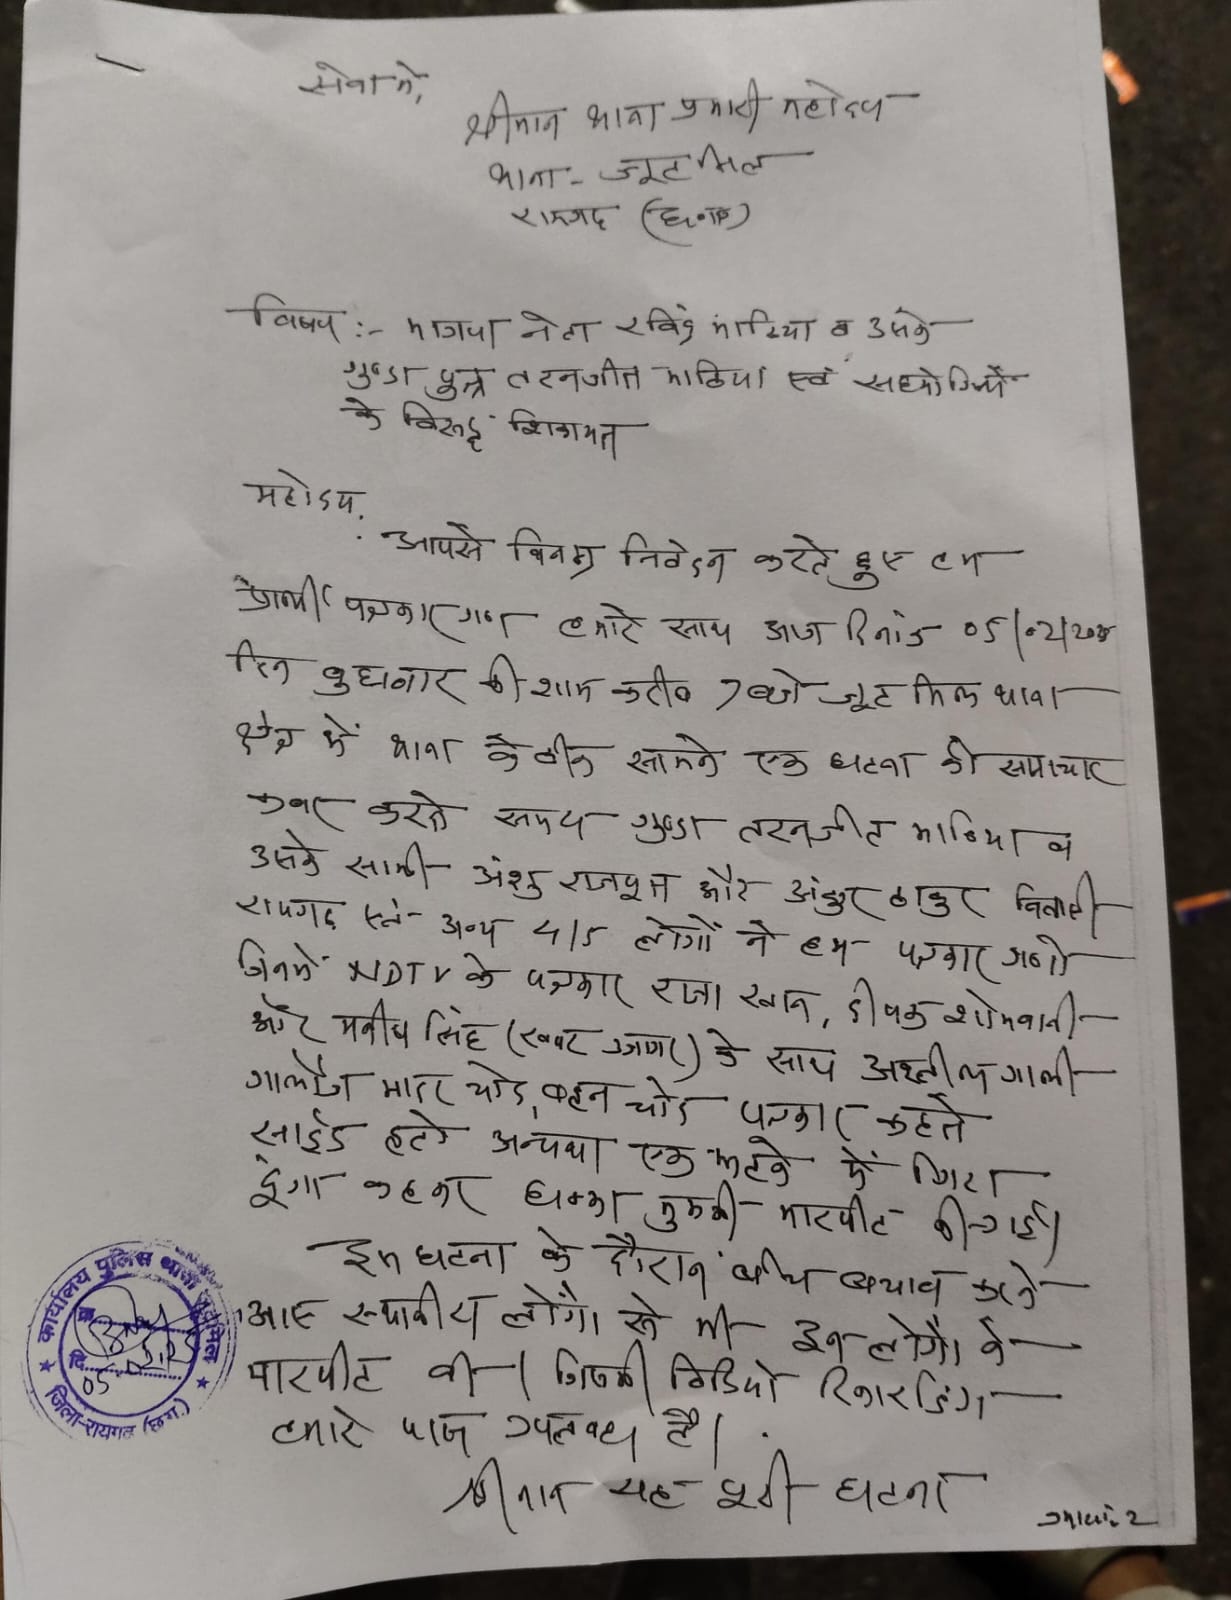 सेवा में,
श्रीमान थाना प्रभारी महोदय
थाना - जूटमिल
रायगढ (छ.ग.)
विषय :- भाजपा नेता रविंद्र भाटिया व उसके
गुण्डा पुत्र तरनजीत भाटिया एवं सहयोगियों
के विरूद्ध शिकायत
महोदय,
आपसे विनम्र निवेदन करते हुए हम
प्रार्थी पत्रकार गण हमारे साथ आज दिनांक 05/02/2025
दिन बुधवार की शाम करीब 7 बजे जूट मिल थाना
क्षेत्र में थाना के ठीक सामने एक घटना की समाचार
कवर करते समय गुण्डा तरनजीत भाटिया व
उसके साथी अंशु राजपूत और अंकुर ठाकुर निवासी
रायगढ एवं अन्य 4/5 लोगों ने हम पत्रकार गणो
जिनमें NDTV के पत्रकार राजा खान, दीपक शोभवानी
और मनीष सिंह (खबर उजागर) के साथ अश्लील गाली
गालौज मादर चोद, बहन चोद पत्रकार कहते
साईड हटो अन्यथा एक झटके में गिरा
दूंगा कहकर धक्का मुक्की मारपीट की गई।
इस घटना के दौरान बीच बचाव करने
आए स्थानीय लोगो से भी इन लोगो ने
मारपीट की। जिसकी विडियो रिकारडिंग
हमारे पास उपलब्ध है।
श्रीमान यह पूरी घटना
कार्यालय पुलिस थाना जूटमिल
क्र.
दि. 05
जिला-रायगढ़ (छ.ग.)